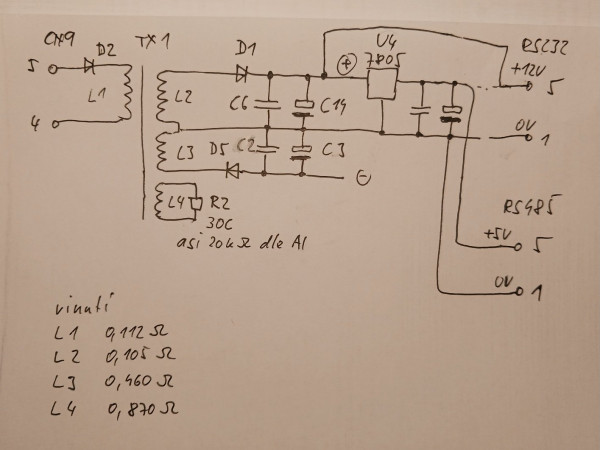 CX9
TX1
D2
5
L1
4
D1
U4
7805
+
RS232
+12V
5
L2
C6
C14
0V
1
L3
D5
C2
C3
-
L4
R2
30C
asi 20kΩ dle AI
RS485
+5V
5
0V
1
vinutí
L1 0,112 Ω
L2 0,105 Ω
L3 0,460 Ω
L4 0,870 Ω